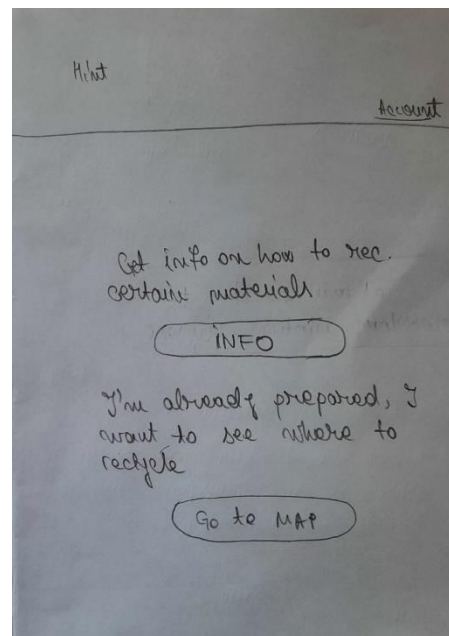 Hint
Account
Get info on how to rec.
certain materials
INFO
I'm already prepared, I
want to see where to
recycle
Go to MAP